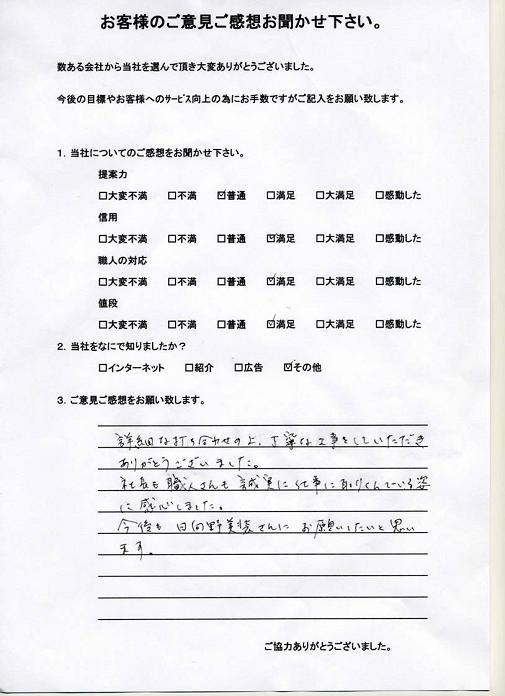 お客様のご意見ご感想お聞かせ下さい。
数ある会社から当社を選んで頂き大変ありがとうございました。
今後の目標やお客様へのサービス向上の為にお手数ですがご記入をお願い致します。
1. 当社についてのご感想をお聞かせ下さい。
提案力
□大変不満 □不満 ☑普通 □満足 □大満足 □感動した
信用
□大変不満 □不満 □普通 ☑満足 □大満足 □感動した
職人の対応
□大変不満 □不満 □普通 ☑満足 □大満足 □感動した
値段
□大変不満 □不満 □普通 ☑満足 □大満足 □感動した
2. 当社をなにで知りましたか？
□インターネット □紹介 □広告 ☑その他
3. ご意見ご感想をお願い致します。
詳細な打ち合わせの上、丁寧な工事をしていただき
ありがとうございました。
社長も職人さんも誠実に仕事に取りくんでいる姿
に感心しました。
今後も日向野美装さんにお願いしたいと思い
ます。
ご協力ありがとうございました。